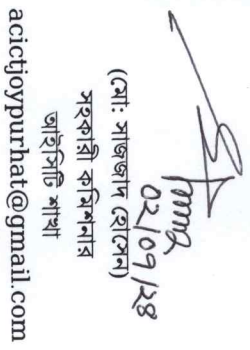 ০২/০৭/২৪
(মো: সাজ্জাদ হোসেন)
সহকারী কমিশনার
আইসিটি শাখা
acictjoypurhat@gmail.com